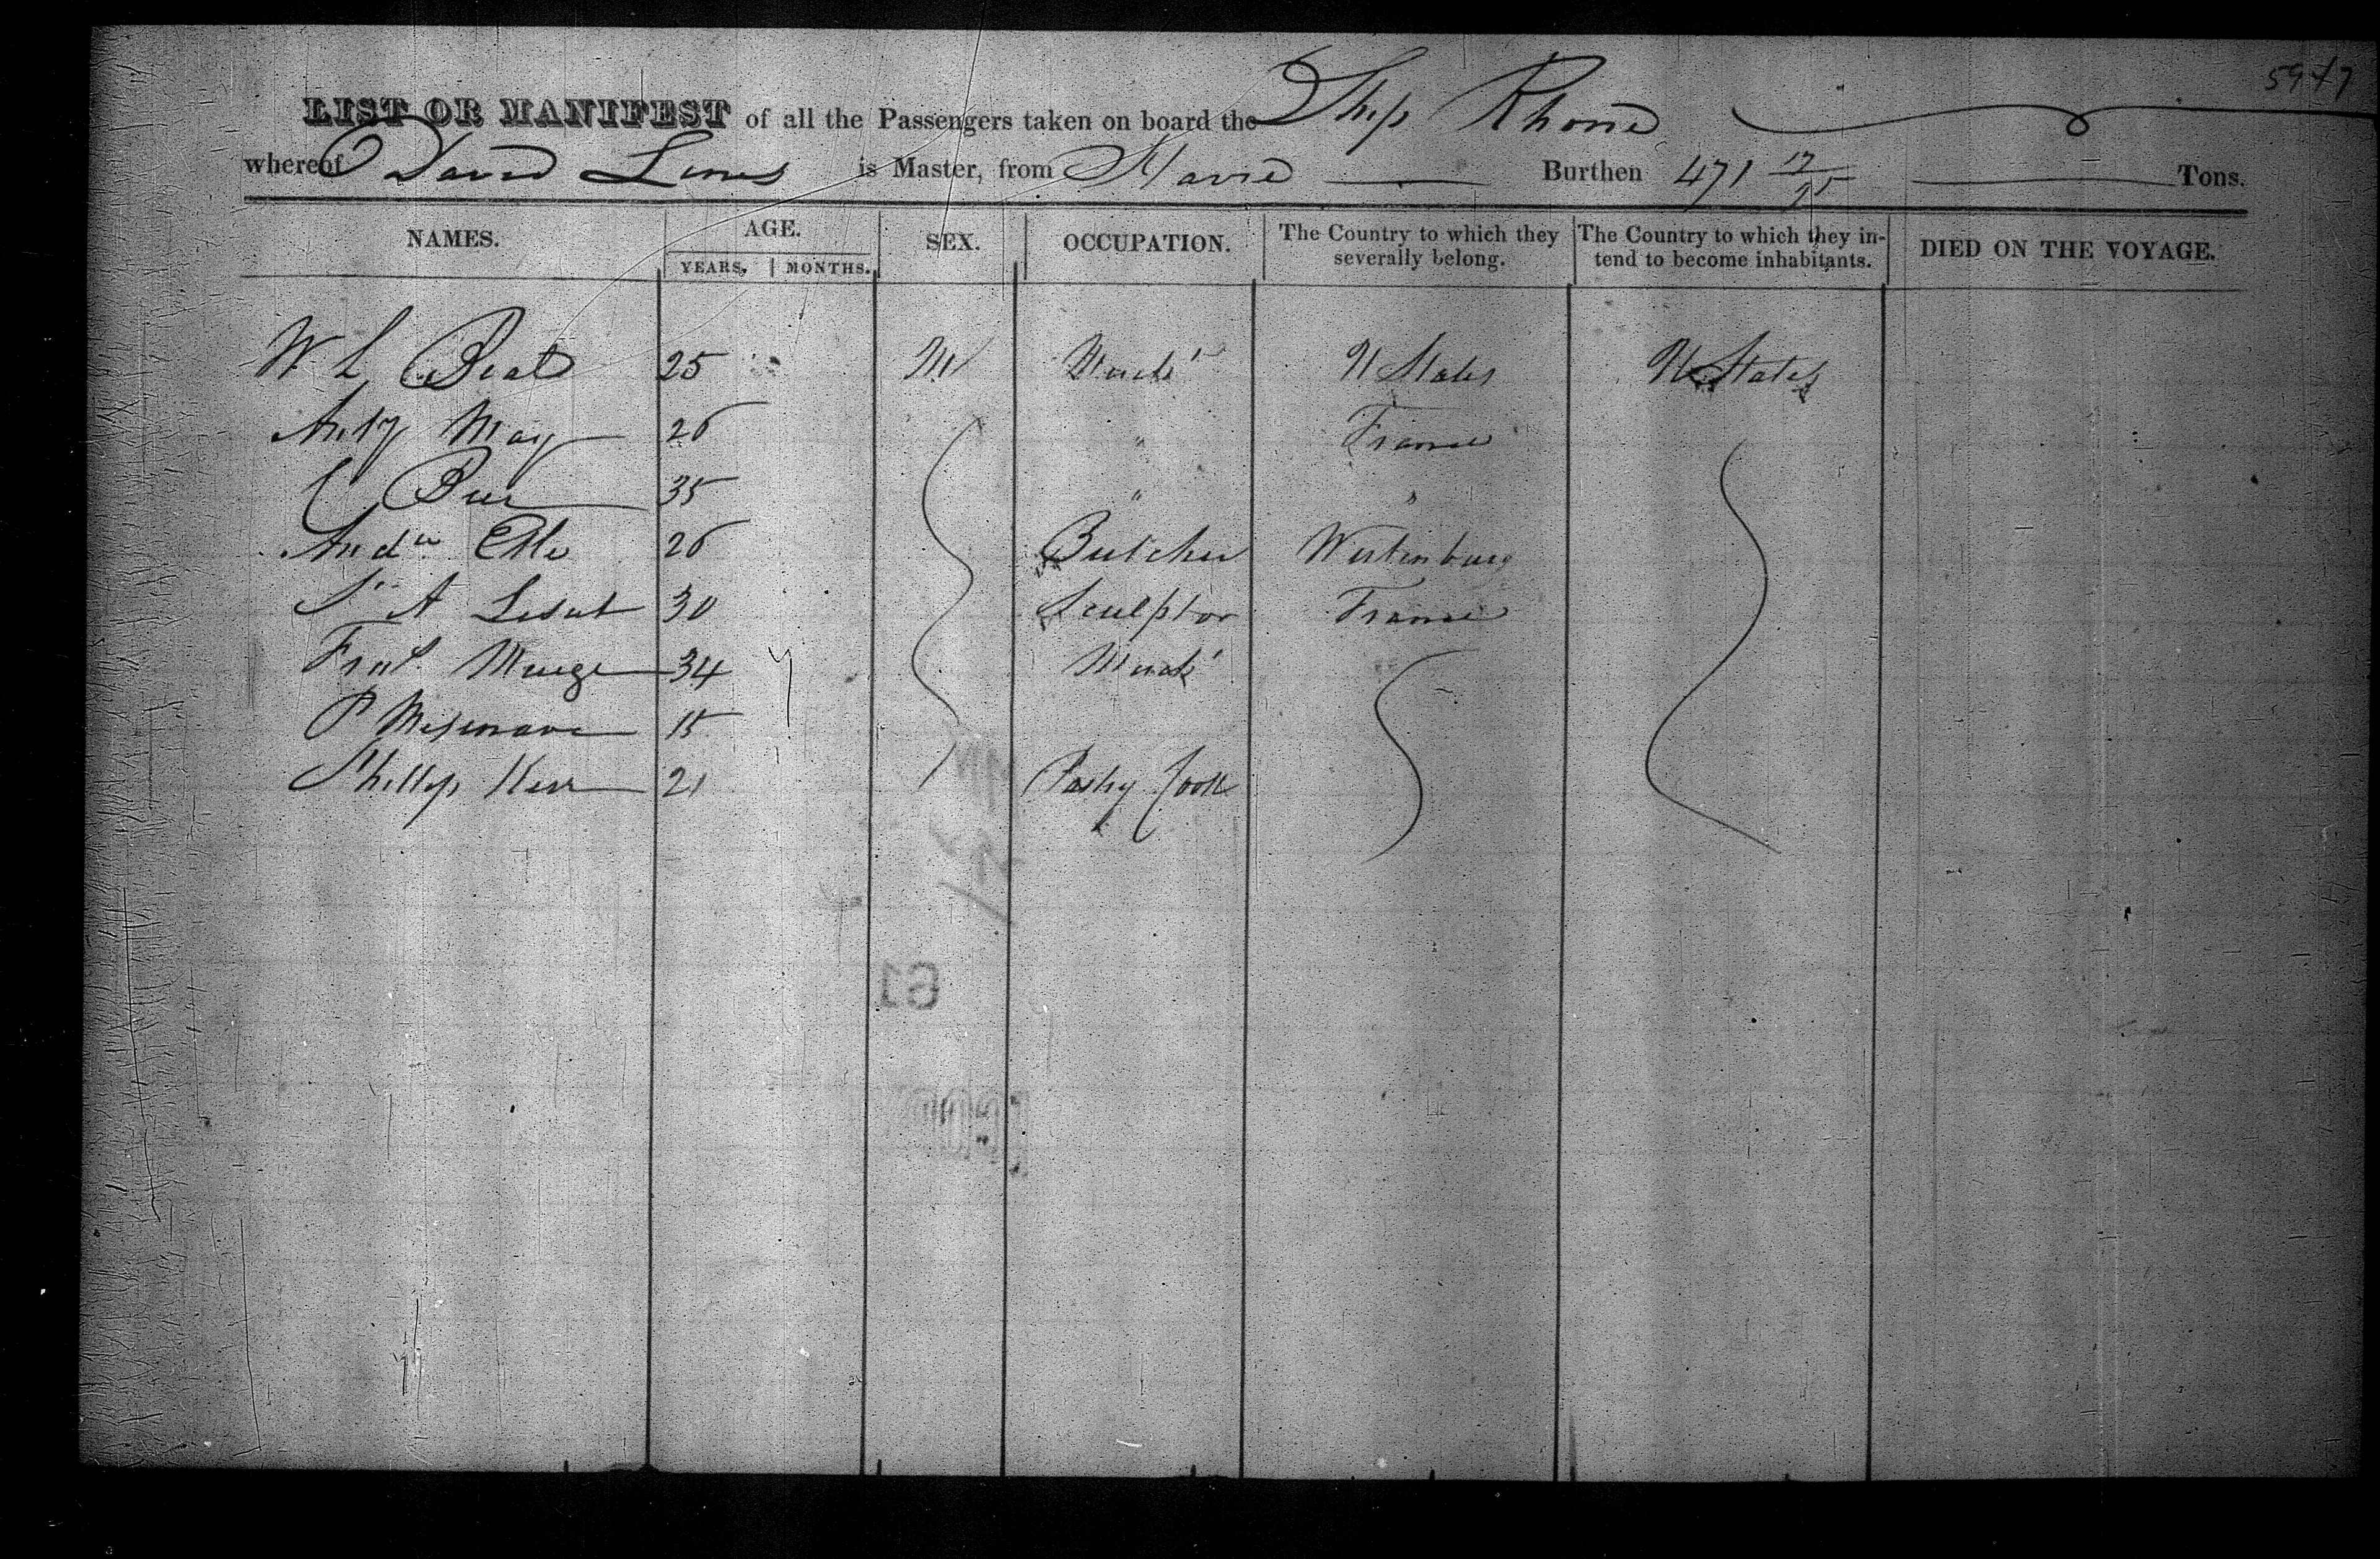 5947
LIST OR MANIFEST of all the Passengers taken on board the Ship Rhone
whereof David Lines is Master, from Havre Burthen 471 17/95 Tons.
NAMES. AGE. YEARS. MONTHS. SEX. OCCUPATION. The Country to which they severally belong. The Country to which they intend to become inhabitants. DIED ON THE VOYAGE.
W L Beal 25 M Merch' U States U States
Anty May 26 " France
C 35 " "
Andw 26 Butcher Wertenburg
A 30 Sculptor France
34 Merch'
P 15
Phillip Kerr 21 Pastry Cook
61